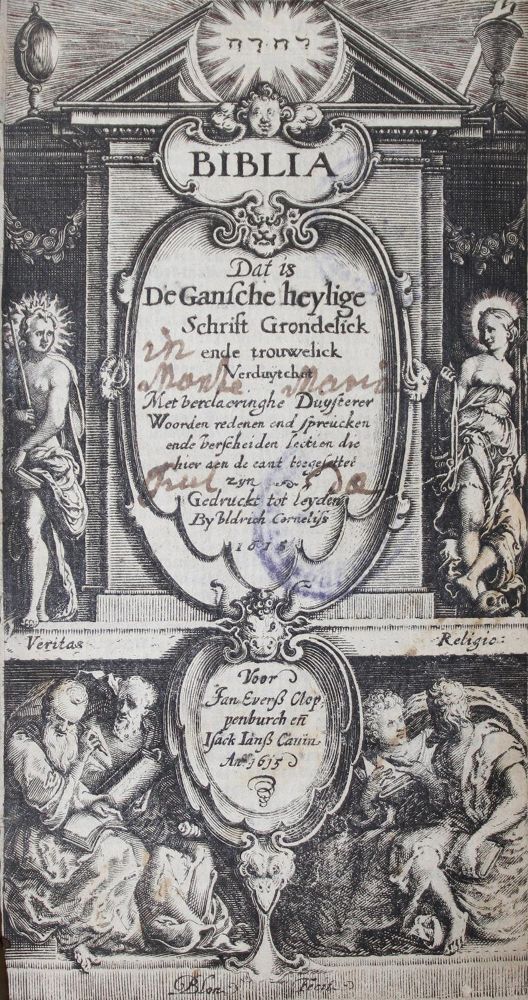 BIBLIA
Dat is
De Gansche heylige
Schrift Grondelick
in
ende trouwelick
Verduytchet
Monte Maria
Met verclaeringhe Duysterer
Woorden redenen end spreucken
ende verscheiden lection die
hier aen de cant toegesettet
zyn
Gedruckt tot leyden
By Uldrich Cornelijs
1615
Veritas
Religio:
Voor
Jan Everß Clop
penburch en̄
Isack Ianß Cavin
An° 1615
Blon fecit